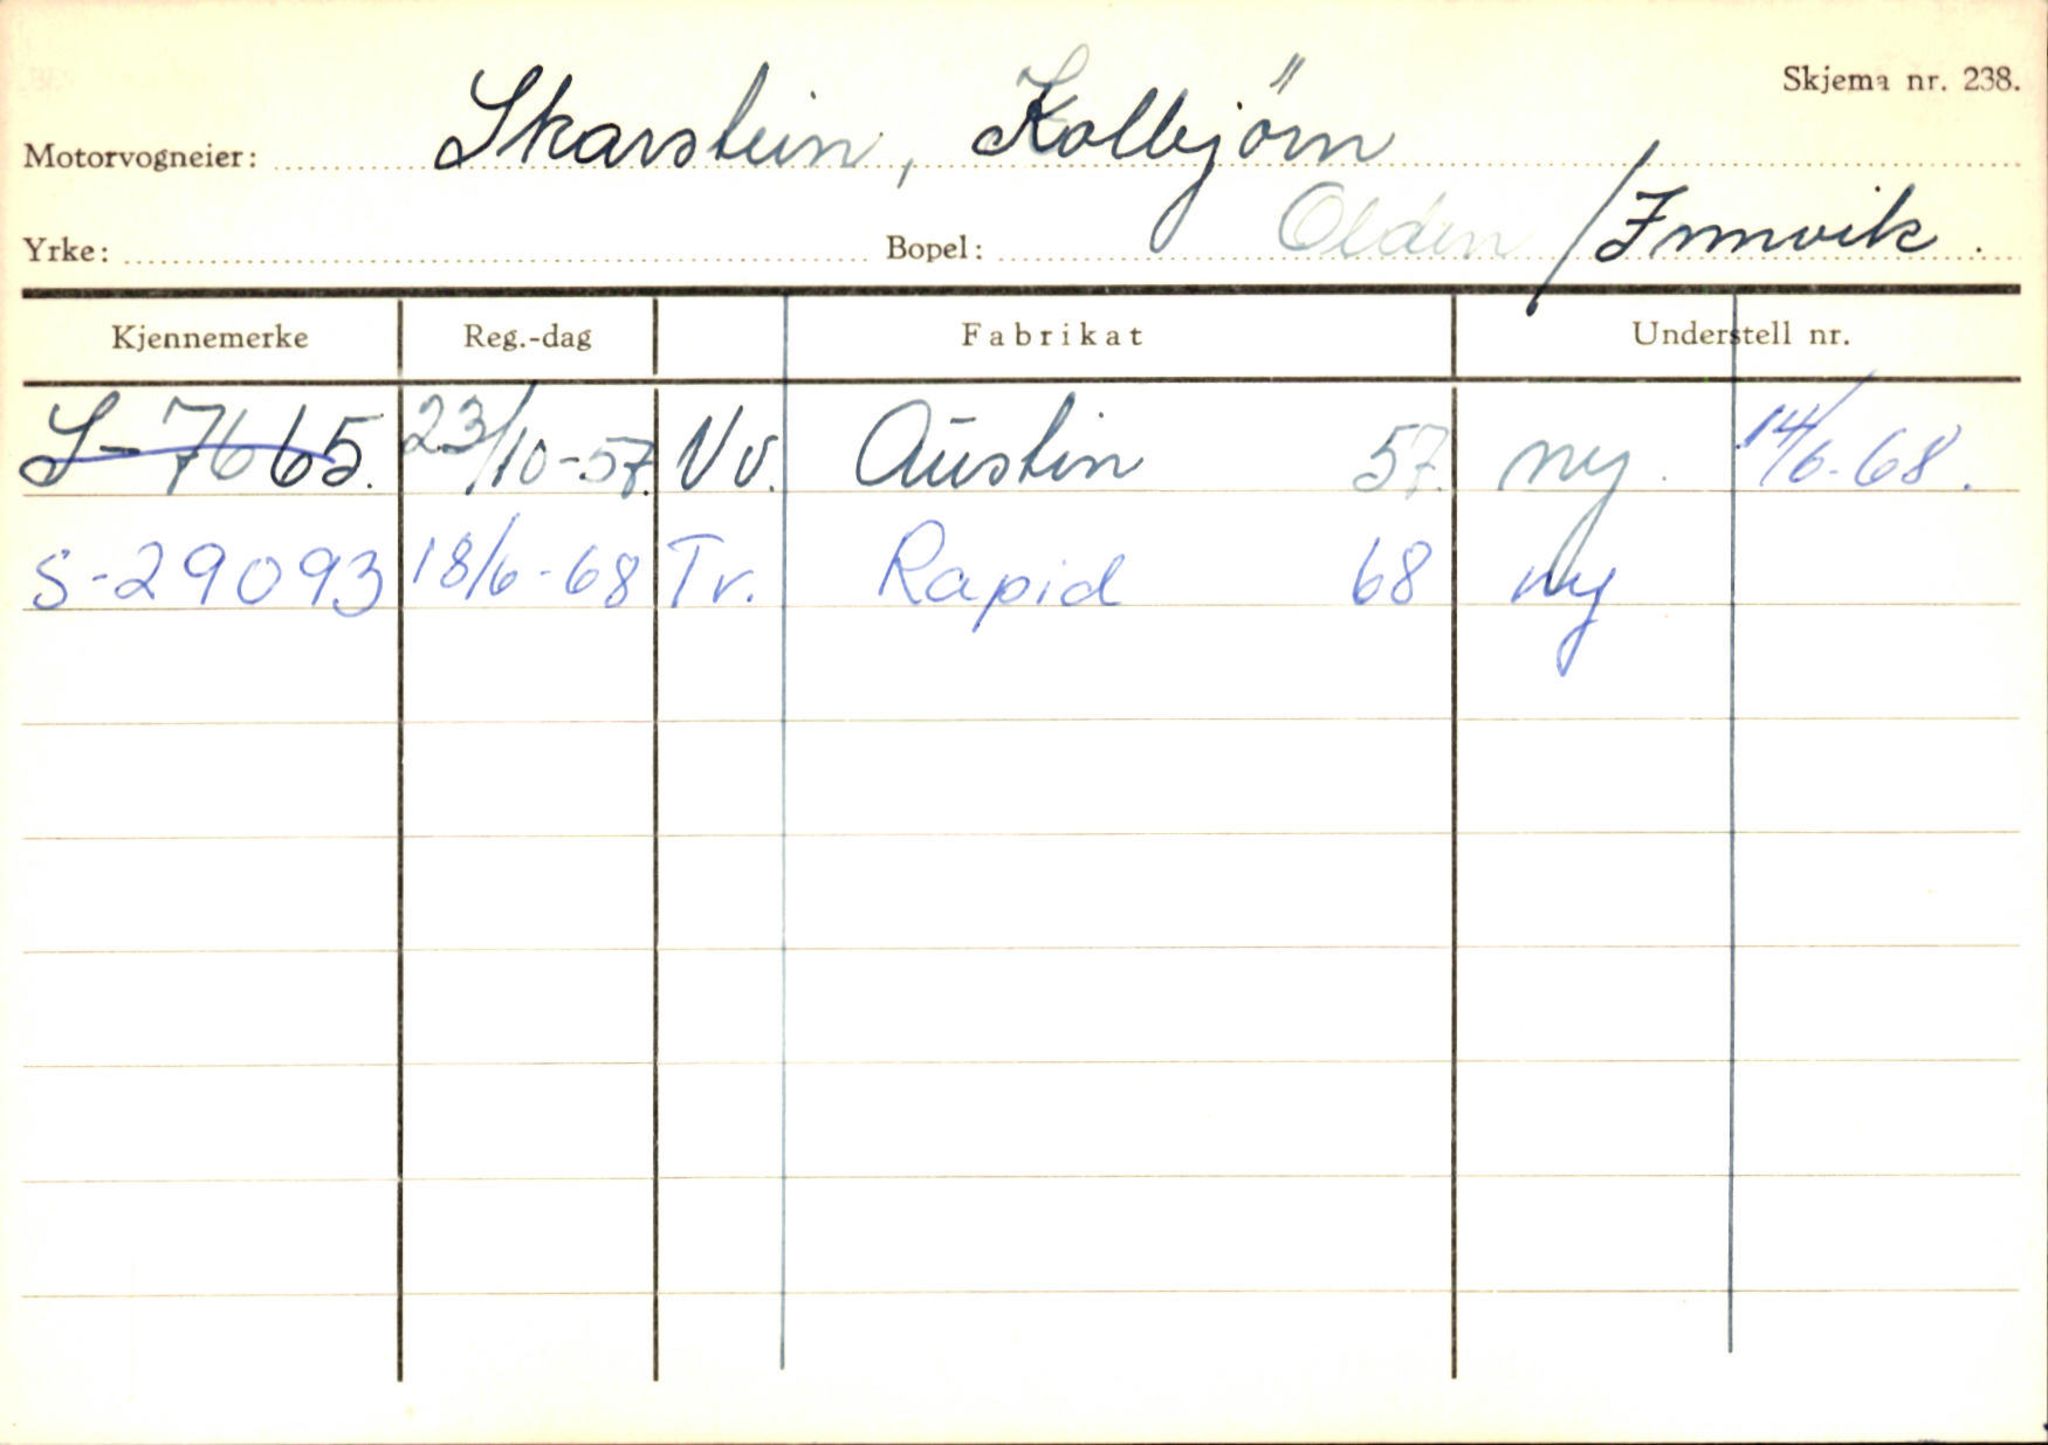 Skjema nr. 238.
Motorvogneier: Skarstein, Kolbjörn
Yrke: Bopel: Olden / Innvik.
Kjennemerke Reg.-dag Fabrikat Understell nr.
S-7665. 23/10-57. Vv. Austin 57. ny. 14/6-68.
S-29093 18/6-68 Tr. Rapid 68 ny